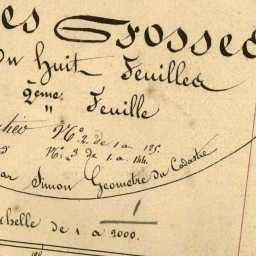 es Grosses
Huit Feuilles
2eme Feuille
Nº 2. de 1 a 125.
Nº 3 de 1 a 144.
ar Simon Geometre du Cadastre
1
chelle de 1 a 2000.